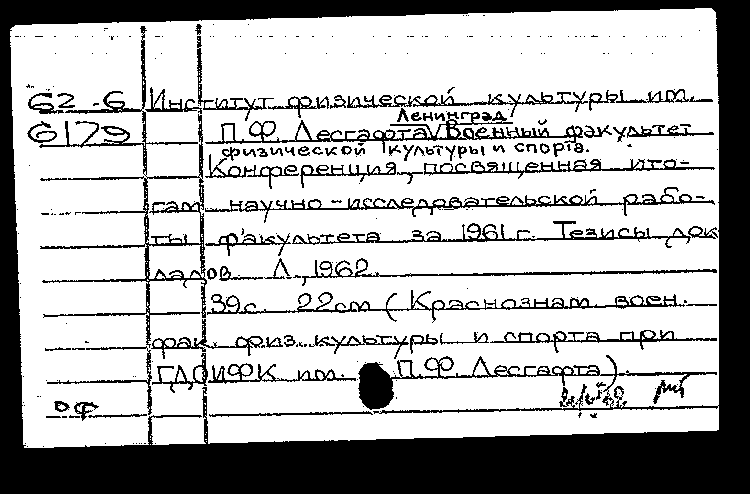 62-6 Институт физической культуры им.
Ленинград/
6179 П.Ф. Лесгафта/Военный факультет
физической культуры и спорта.
Конференция, посвященная ито-
гам научно-исследовательской рабо-
ты факультета за 1961 г. Тезисы док
ладов. Л., 1962.
39с. 22см (Краснознам. воен.
фак. физ. культуры и спорта при
ГДОИФК им. П.Ф. Лесгафта).
оф